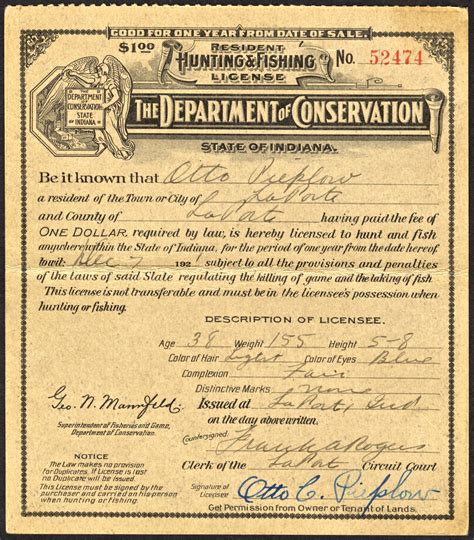 GOOD FOR ONE YEAR FROM DATE OF SALE.
$1.00 RESIDENT
HUNTING & FISHING No. 52474
LICENSE
THE DEPARTMENT OF CONSERVATION
STATE OF INDIANA
THE DEPARTMENT of CONSERVATION
STATE OF INDIANA.
Be it known that Otto Pieplow
a resident of the Town or City of LaPorte
and County of LaPorte having paid the fee of
ONE DOLLAR required by law, is hereby licensed to hunt and fish
anywhere within the State of Indiana, for the period of one year from the date hereof
to wit: Dec 7 1921 subject to all the provisions and penalties
of the laws of said State regulating the killing of game and the taking of fish
This license is not transferable and must be in the licensee's possession when
hunting or fishing.
DESCRIPTION OF LICENSEE.
Age 38 Weight 155 Height 5-8
Color of Hair Light Color of Eyes Blue
Complexion Fair
Distinctive Marks none
Geo. N. Mannfeld
Issued at LaPorte, Ind
Superintendent of Fisheries and Game,
Department of Conservation.
on the day above written.
Countersigned: Frank A Rogers
Clerk of the LaPorte Circuit Court
NOTICE
The Law makes no provision
for Duplicates. If License is lost
no Duplicate will be issued.
This License must be signed by the
purchaser and carried on his person
when hunting and fishing.
Signature of
Licensee Otto C. Pieplow
Get Permission from Owner or Tenant of Lands.